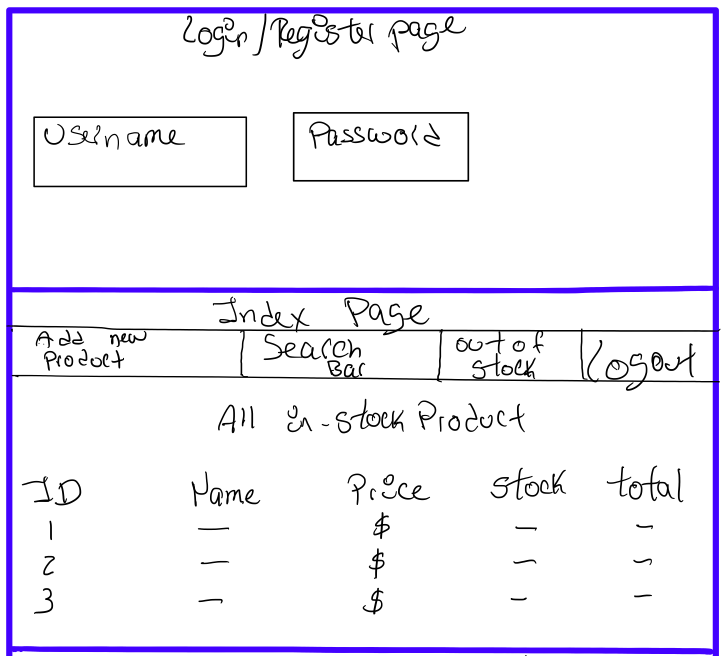 Login/Register page
Username Password
Index Page
Add new Product Search Bar out of stock Logout
All in-stock Product
ID Name Price stock total
1 — $ — –
2 — $ — –
3 — $ – –